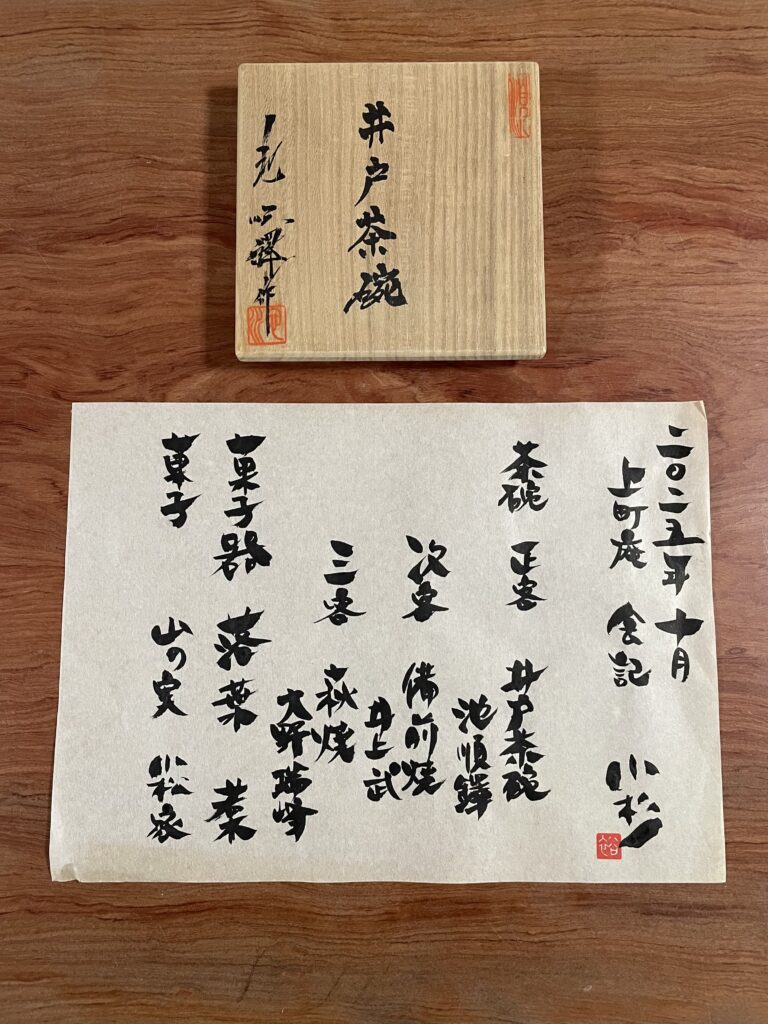 井戸茶碗
二〇二五年 十月
上町庵 会記 小松
茶碗 正客 井戸茶碗
池順鐸
次客 備前焼
井上武
三客 萩焼
大野瑞峰
菓子器 落葉
菓子 山の実 小松家